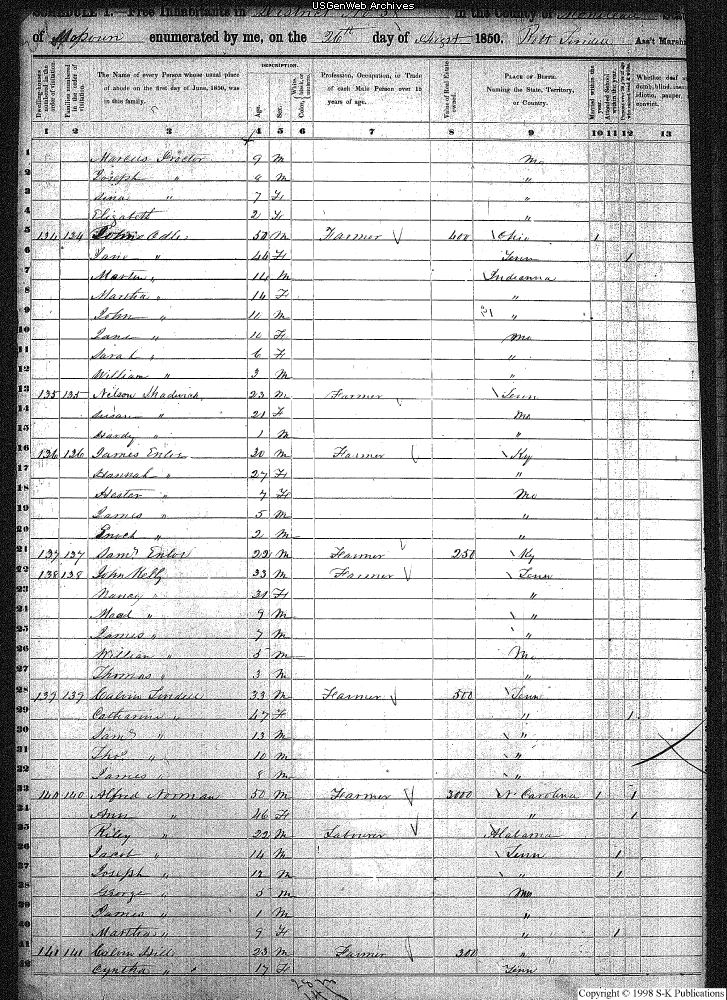 USGenWeb Archives
SCHEDULE I.—Free Inhabitants in District in the County of State
of Missouri enumerated by me, on the 26th day of August 1850. Ass't Marshal
Dwelling-houses numbered in the order of visitation.
Families numbered in the order of visitation.
The Name of every Person whose usual place of abode on the first day of June, 1850, was in this family.
DESCRIPTION.
Age.
Sex.
White, Color, black, or mulatto.
Profession, Occupation, or Trade of each Male Person over 15 years of age.
Value of Real Estate owned.
PLACE OF BIRTH. Naming the State, Territory, or Country.
Married within the year.
Attended School within the year.
Whether deaf dumb, blind, idiotic, pauper, convict.
1 2 3 4 5 6 7 8 9 10 11 12 13
1 Marcus Proctor 9 M Mo
2 Joseph " 8 M "
3 " 7 F "
4 Elizabeth 2 F "
5 134 134 John 50 M Farmer 400 Ohio 1
6 Jane " 44 F Tenn 1
7 " 14 M Indianna
8 Martha " 14 F "
9 John " 11 M "
10 Jane " 10 F Mo
11 Sarah " 6 F "
12 William " 3 M "
13 135 135 Nelson Shadwick 23 M Farmer Tenn
14 Susan " 21 F Mo
15 Hardy " 1 M "
16 136 136 James Enloe 30 M Farmer Ky
17 Hannah " 27 F "
18 Hester " 7 F Mo
19 James " 5 M "
20 Enoch " 2 M "
21 137 137 Saml Enloe 22 M Farmer 250 Ky
22 138 138 John Kelly 33 M Farmer Tenn
23 Nancy " 31 F "
24 " 9 M "
25 James " 7 M "
26 William " 5 M Mo
27 Thomas " 3 M "
28 139 139 Calvin 33 M Farmer 500 Tenn
29 Catharine " 47 F " 1
30 Saml " 13 M "
31 Thos " 10 M "
32 James " 8 M "
33 140 140 Alfred Norman 50 M Farmer 3000 N Carolina 1 1
34 Ann " 46 F " 1
35 Riley " 22 M Labourer Alabama
36 Jacob " 14 M Tenn 1
37 Joseph " 12 M " 1
38 George " 5 M Mo
39 James " 1 M "
40 Martha " 9 F " 1
41 141 141 Calvin Hill 23 M Farmer 300 "
42 Cyntha " 17 F Tenn
Copyright © 1998 S-K Publications